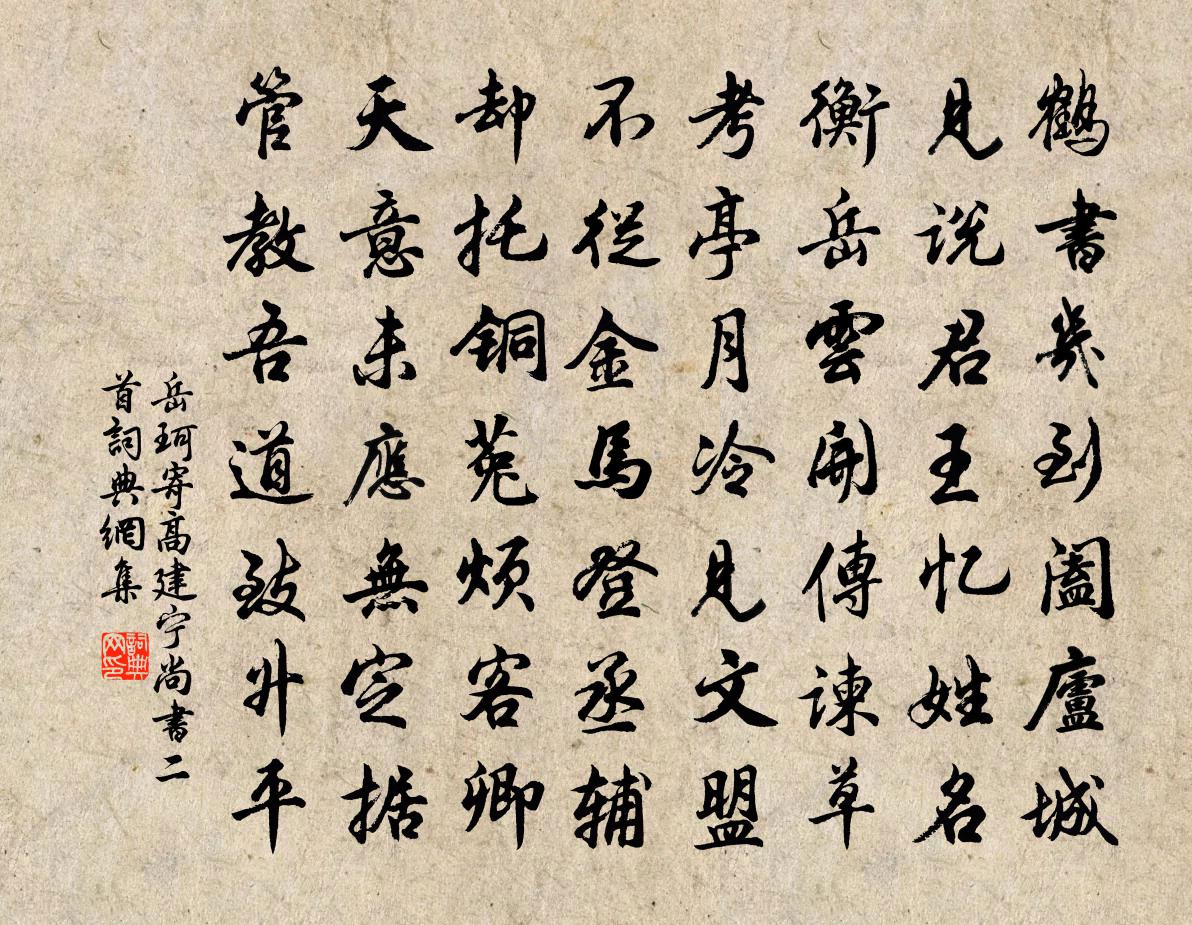 鶴書幾到闔廬城
見說君王忆姓名
衡岳雲開傳諫草
考亭月冷見文盟
不從金馬登丞辅
却托铜菟烦客卿
天意未應無定据
管教吾道致升平
岳珂寄高建宁尚書二
首詞典網集
詞典
网印